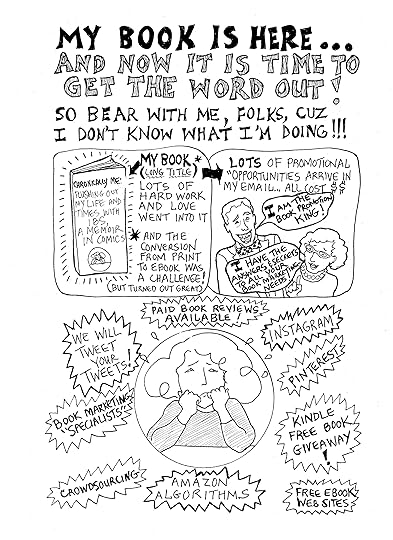 MY BOOK IS HERE...
AND NOW IT IS TIME TO
GET THE WORD OUT!
SO BEAR WITH ME, FOLKS, CUZ
I DON'T KNOW WHAT I'M DOING!!!
CHRONICALLY ME:
PUSHING OUT
MY LIFE AND
TIMES WITH
IBS,
A MEMOIR
IN COMICS
MY BOOK*
(LONG TITLE)
LOTS OF
HARD WORK
AND LOVE
WENT INTO IT
* AND THE
CONVERSION
FROM PRINT
TO EBOOK WAS
A CHALLENGE!
(BUT TURNED OUT GREAT)
LOTS OF PROMOTIONAL
"OPPORTUNITIES ARRIVE IN
MY EMAIL... ALL COST $$
I AM THE
BOOK PROMOTION
KING!
I HAVE THE
ANSWERS & SECRETS
TO ALL YOUR
BOOK MARKETING
NEEDS!
PAID BOOK REVIEWS
AVAILABLE!
WE WILL
TWEET
YOUR
TWEETS!
INSTAGRAM
PINTEREST
BOOK MARKETING
"SPECIALISTS"
KINDLE
FREE BOOK
GIVEAWAY
!
CROWDSOURCING
AMAZON
ALGORITHMS
FREE EBOOK
WEB SITES